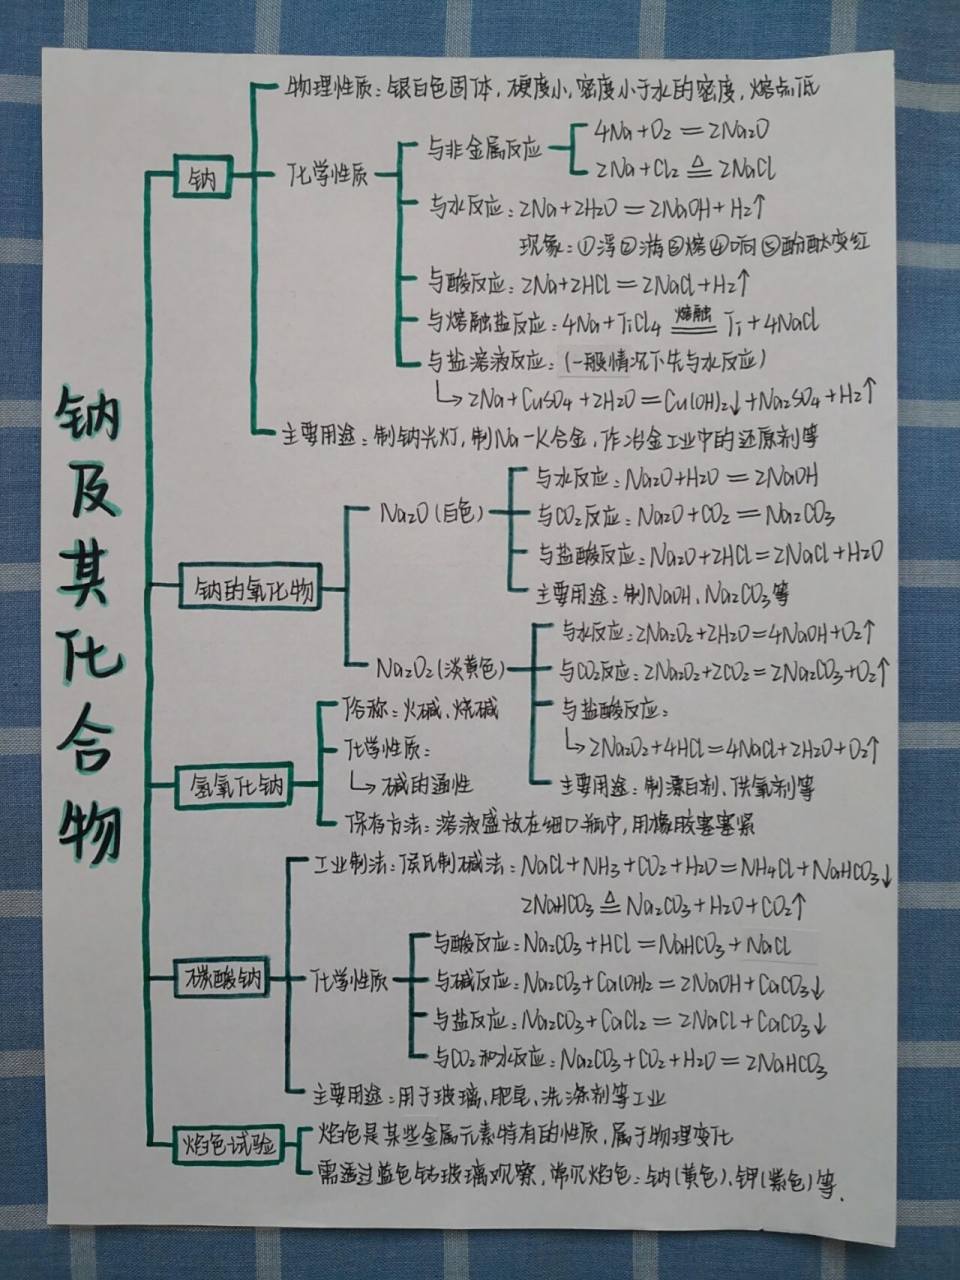 钠及其化合物
钠
物理性质：银白色固体，硬度小，密度小于水的密度，熔点低
化学性质
与非金属反应
4Na+O2=2Na2O
2Na+Cl2 ≜ 2NaCl
与水反应：2Na+2H2O=2NaOH+H2↑
现象：①浮②游③熔④响⑤酚酞变红
与酸反应：2Na+2HCl=2NaCl+H2↑
与熔融盐反应：4Na+TiCl4 熔融 Ti+4NaCl
与盐溶液反应：(一般情况下先与水反应)
↳2Na+CuSO4+2H2O=Cu(OH)2↓+Na2SO4+H2↑
主要用途：制钠光灯，制Na-K合金，作冶金工业中的还原剂等
钠的氧化物
Na2O(白色)
与水反应：Na2O+H2O=2NaOH
与CO2反应：Na2O+CO2=Na2CO3
与盐酸反应：Na2O+2HCl=2NaCl+H2O
主要用途：制NaOH、Na2CO3等
Na2O2(淡黄色)
与水反应：2Na2O2+2H2O=4NaOH+O2↑
与CO2反应：2Na2O2+2CO2=2Na2CO3+O2↑
与盐酸反应：
↳2Na2O2+4HCl=4NaCl+2H2O+O2↑
主要用途：制漂白剂、供氧剂等
氢氧化钠
俗称：火碱、烧碱
化学性质：
↳碱的通性
保存方法：溶液盛放在细口瓶中，用橡胶塞塞紧
碳酸钠
工业制法：侯氏制碱法：NaCl+NH3+CO2+H2O=NH4Cl+NaHCO3↓
2NaHCO3 ≜ Na2CO3+H2O+CO2↑
化学性质
与酸反应：Na2CO3+HCl=NaHCO3+NaCl
与碱反应：Na2CO3+Ca(OH)2=2NaOH+CaCO3↓
与盐反应：Na2CO3+CaCl2=2NaCl+CaCO3↓
与CO2和水反应：Na2CO3+CO2+H2O=2NaHCO3
主要用途：用于玻璃、肥皂、洗涤剂等工业
焰色试验
焰色是某些金属元素特有的性质，属于物理变化
需透过蓝色钴玻璃观察，常见焰色：钠(黄色)、钾(紫色)等.